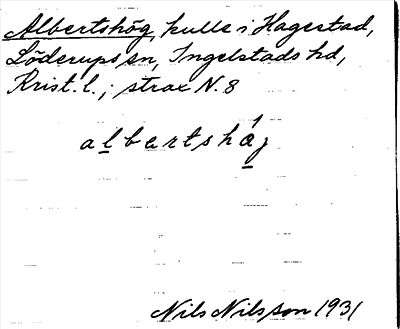 Albertshög, kulle i Hagestad,
Löderups sn, Ingelstads hd,
Krist. l.; strax N. 8
albertshág
Nils Nilsson 1931